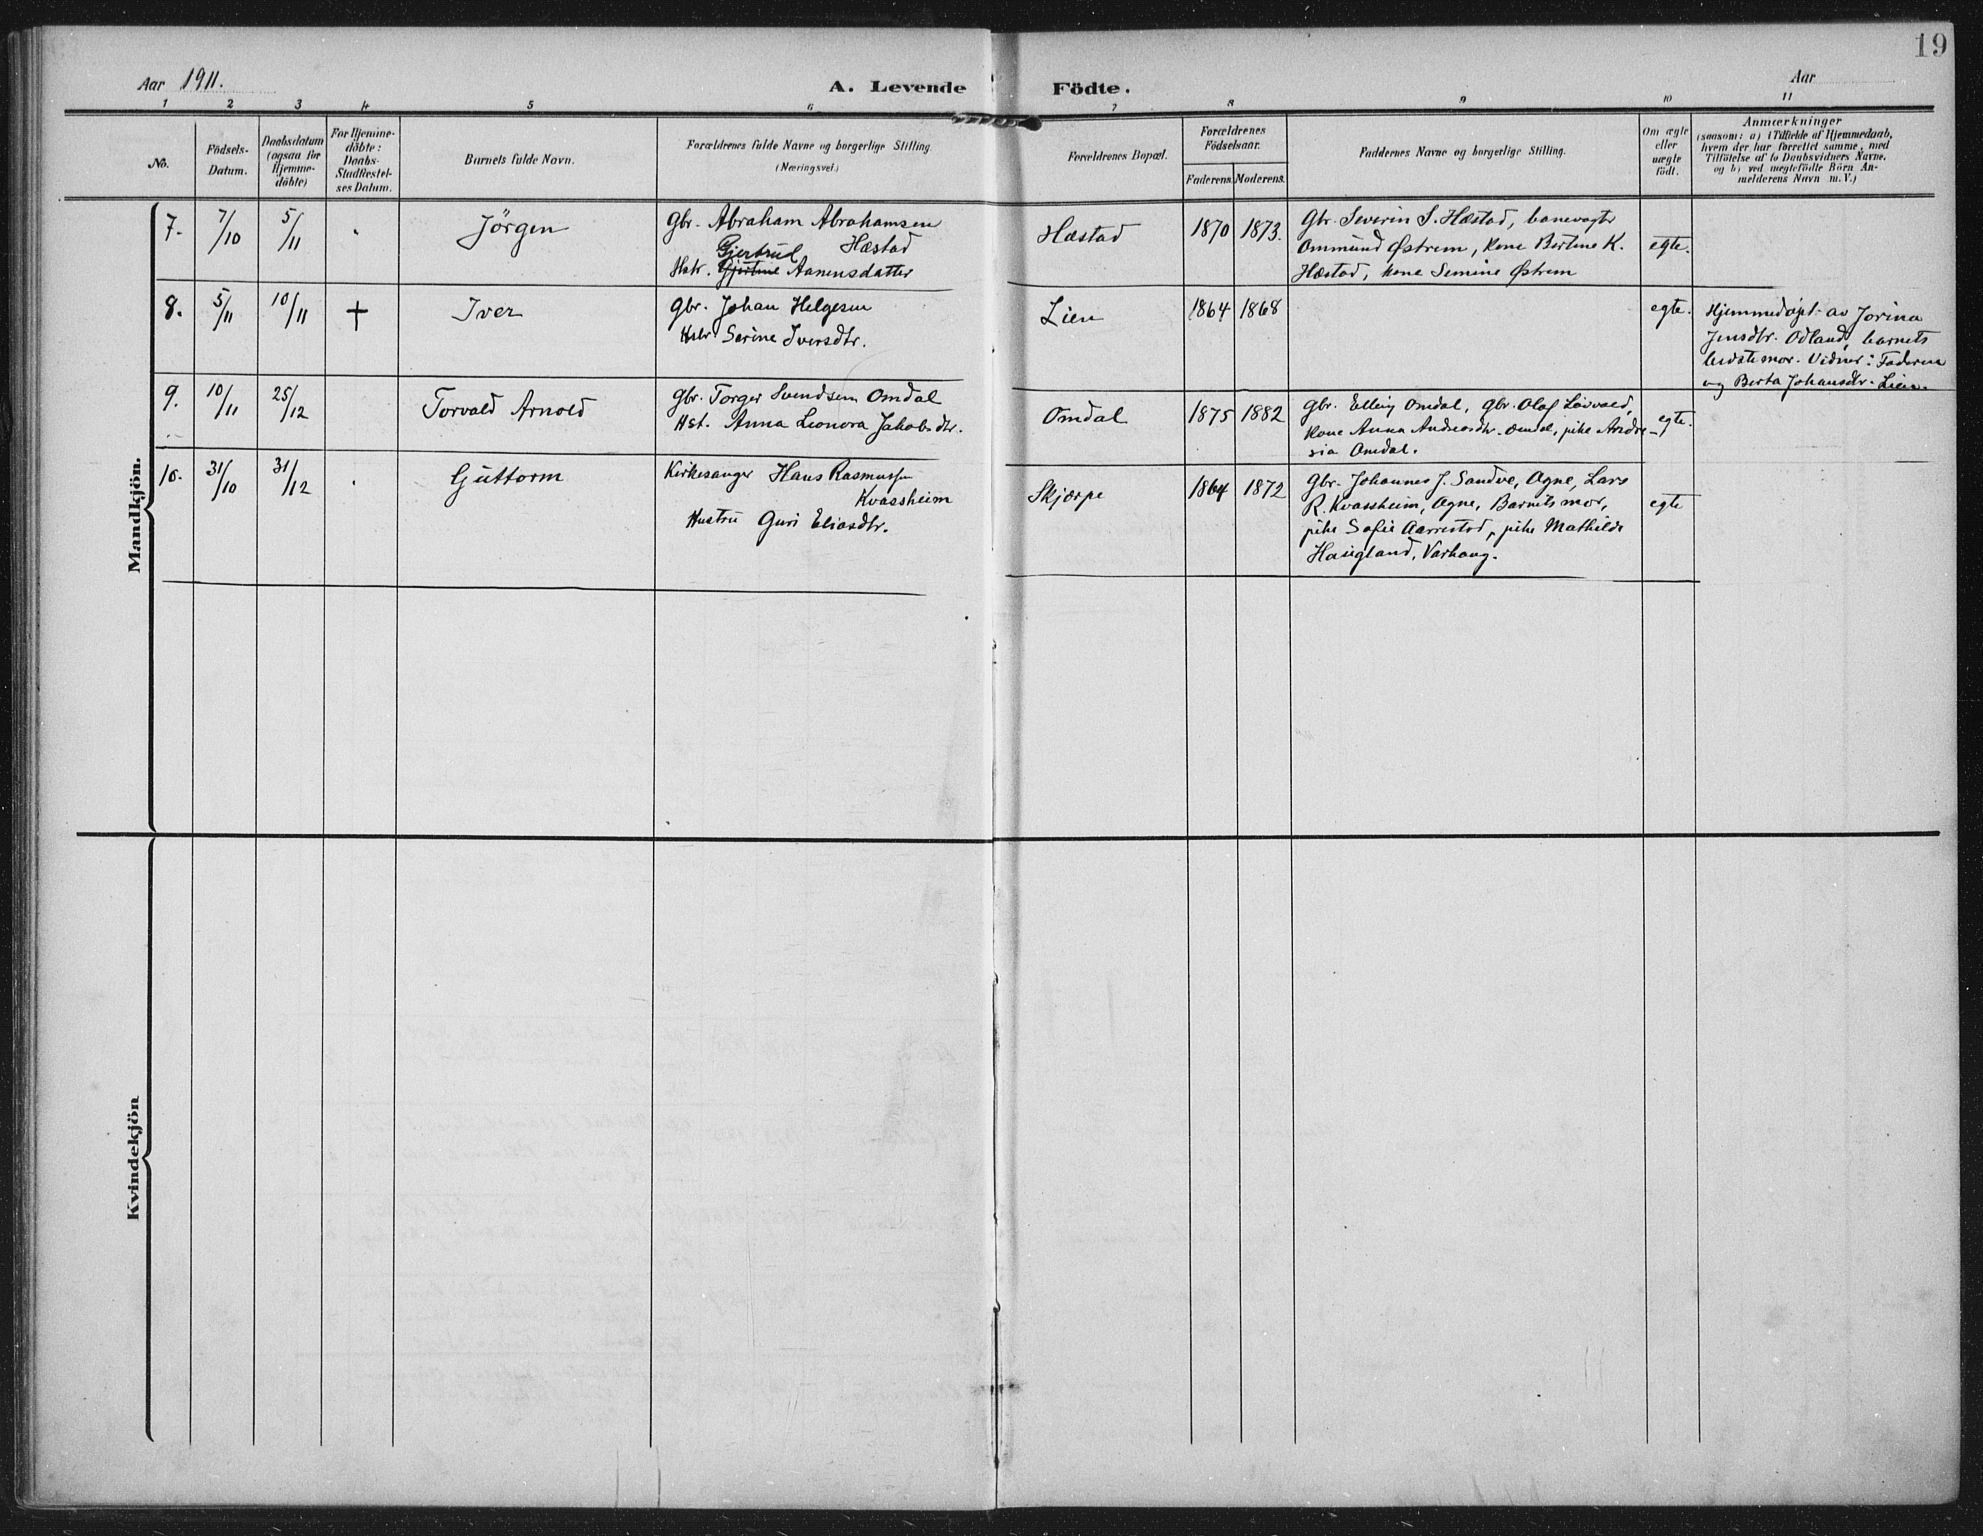 19
Aar 1911.
A. Levende Födte.
Aar
1 2 3 4 5 6 7 8 9 10 11
No.
Födsels-
Datum.
Daabsdatum
(ogsaa for
Hjemme-
döbte)
For Hjemme-
döbte:
Daabs-
Stadfæstel-
ses Datum.
Barnets fulde Navn.
Forældrenes fulde Navne og borgerlige Stilling.
(Næringsvei.)
Forældrenes Bopæl.
Forældrenes
Födselsaar.
Faderens. Moderens.
Faddernes Navne og borgerlige Stilling.
Om ægte
eller
uægte
födt.
Anmærkninger
(saasom: a) i Tilfælde af Hjemmedaab,
hvem der har forrettet samme, med
Tilföielse af to Daabsvidners Navne,
og b) ved uægtefödte Börn An-
melderens Navn m. V.)
Mandkjön.
7. 7/10 5/11 Jörgen
Gbr. Abraham Abrahamsen
Hæstad
Gjertrud
Hstr. Gjertine Aanensdatter
Hæstad 1870 1873.
Gbr. Severin S. Hæstad, banevogter
Ommund Østrem, kone Bertine K.
Hæstad, kone Semine Østrem
egte.
8. 5/11 10/11 + Iver
Gbr. Johan Helgesen
Hstr Serine Iversdtr.
Lien 1864 1868
egte.
Hjemmedøpt av Jorina
Jensdtr. Odland, barnets
bedstemor. Vidner: Faderen
og Berta Johansdtr. Lien.
9. 10/11 25/12 Torvald Arnold
Gbr. Torger Svendsen Omdal
Hst. Anna Leonora Jakobsdtr.
Omdal 1875 1882
Gbr. Elling Omdal, Gbr. Olaf Lövvold,
kone Anna Andreasdtr. Omdal, pike Andre-
sia Omdal.
egte.
10. 31/10 31/12 Guttorm
Kirkesanger Hans Rasmussen
Kvassheim
Hustru Guri Eliasdtr.
Skjærpe 1864 1872
Gbr. Johannes J. Sandve, Ogne, Lars
R. Kvassheim, Ogne, Barnets mor,
pike Sofie Aarrestad, pike Mathilde
Haugland, Varhaug.
egte
Kvindekjön